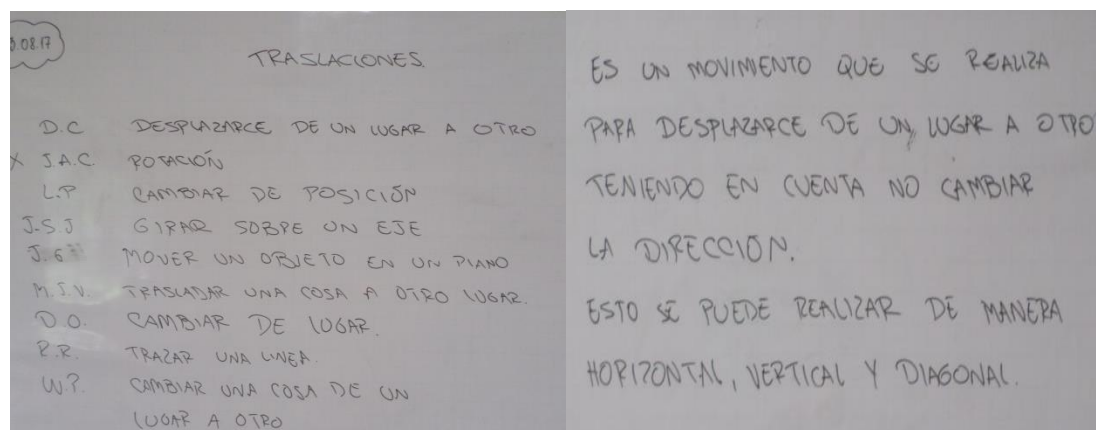 3.08.17
TRASLACIONES.
D.C DESPLAZARCE DE UN LUGAR A OTRO
X J.A.C. ROTACIÓN
L.P CAMBIAR DE POSICIÓN
J.S.J GIRAR SOBRE UN EJE
J.G MOVER UN OBJETO EN UN PLANO
M.J.V. TRASLADAR UNA COSA A OTRO LUGAR.
D.O. CAMBIAR DE LUGAR.
R.R. TRAZAR UNA LINEA.
W.P. CAMBIAR UNA COSA DE UN
LUGAR A OTRO
ES UN MOVIMIENTO QUE SE REALIZA
PARA DESPLAZARCE DE UN LUGAR A OTRO
TENIENDO EN CUENTA NO CAMBIAR
LA DIRECCIÓN.
ESTO SE PUEDE REALIZAR DE MANERA
HORIZONTAL, VERTICAL Y DIAGONAL.